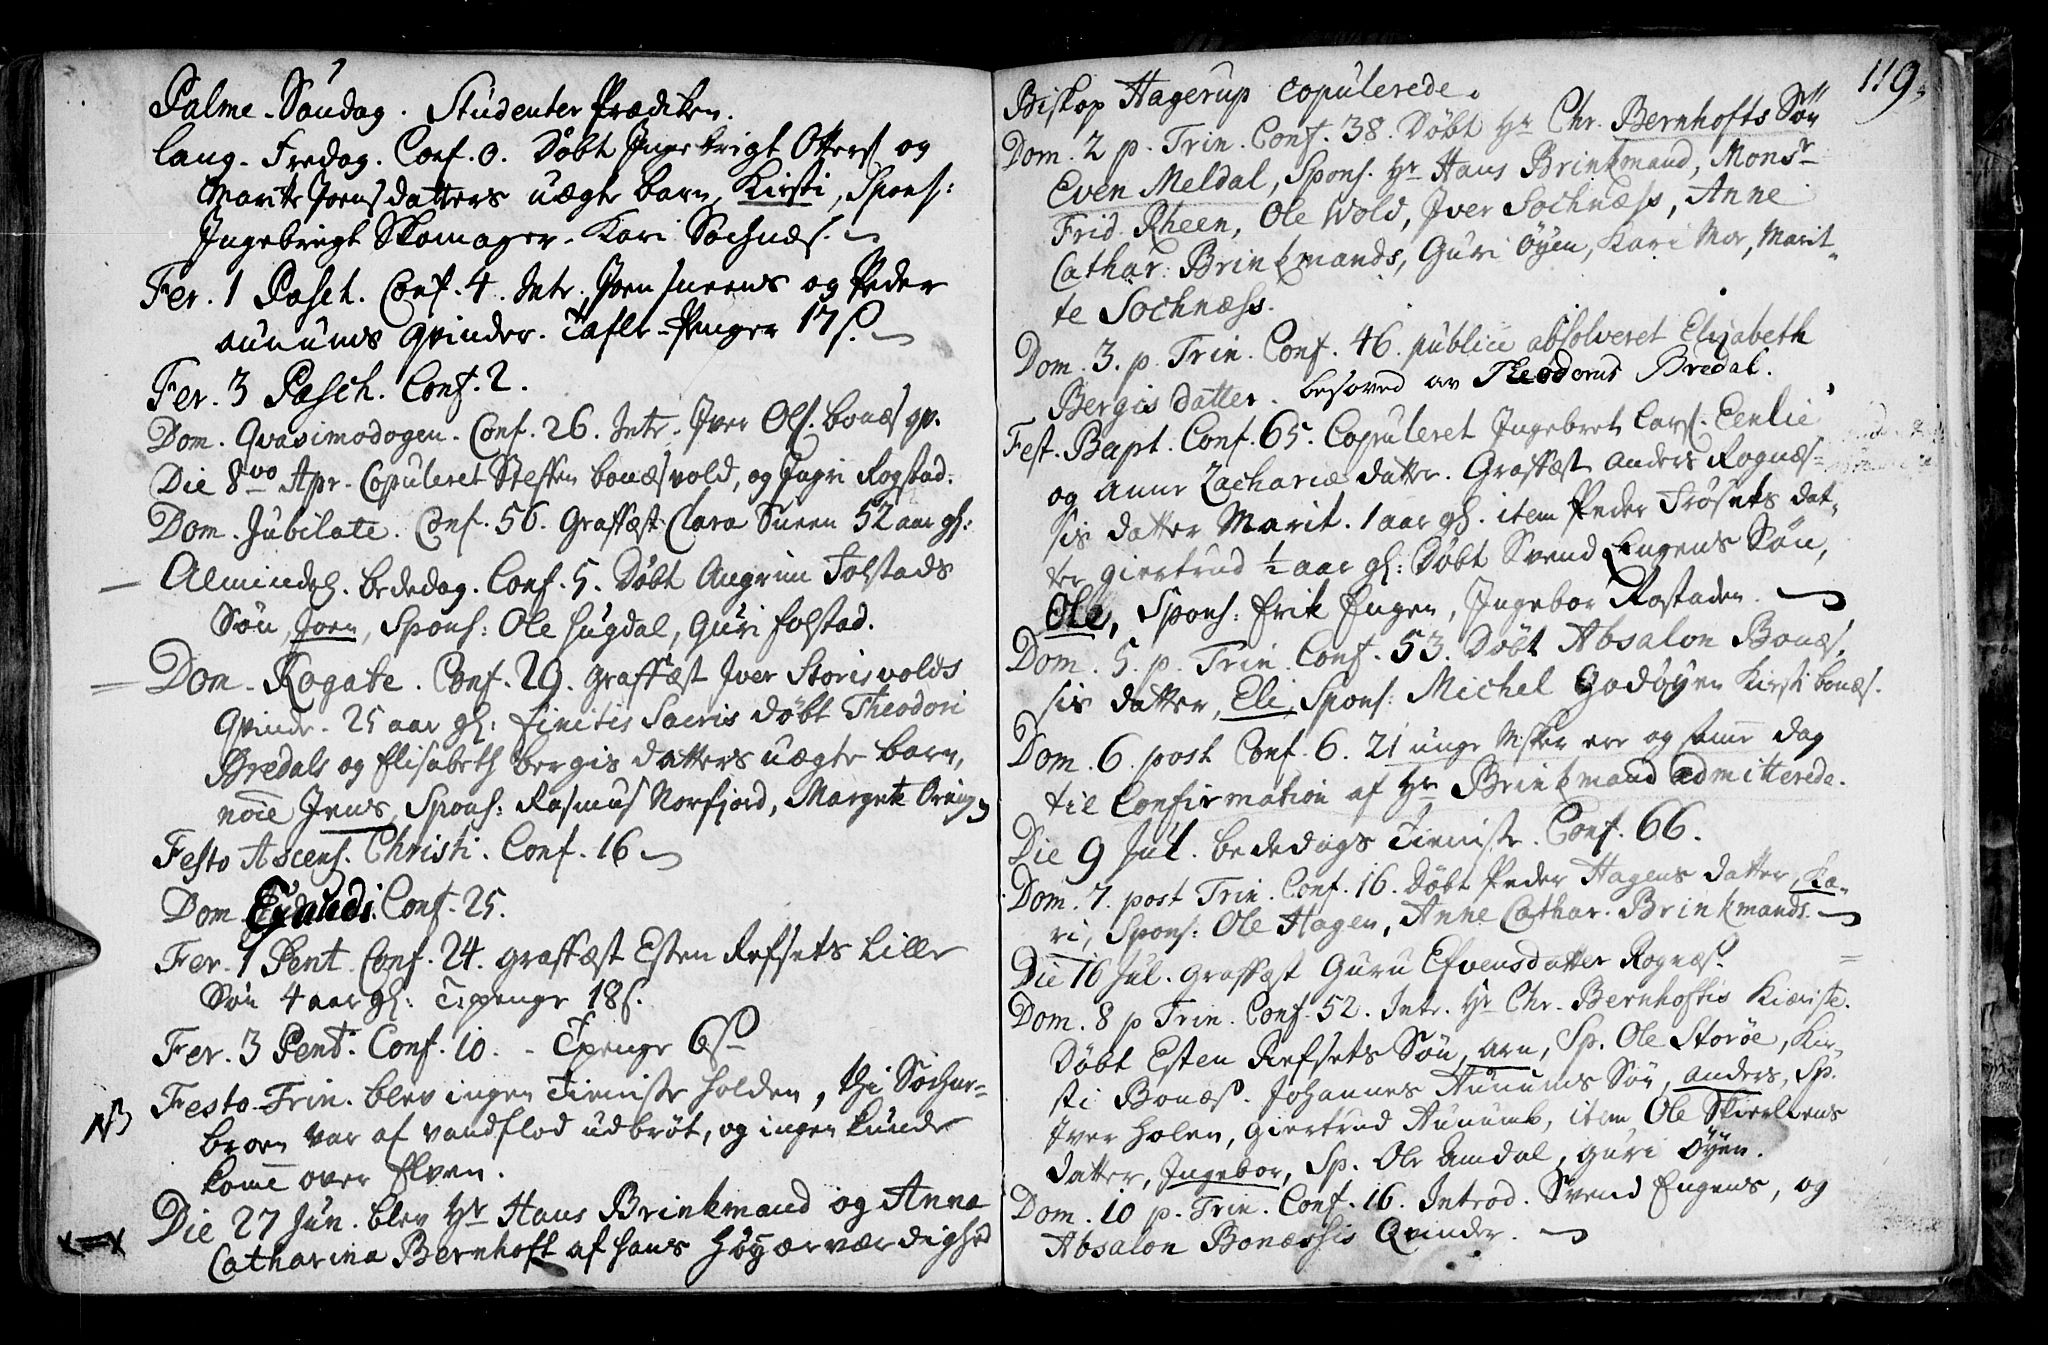 Palme-Søndag. Studenter Prædiken.
lang-Fredag. Conf. 0. Døbt Ingebrigt Otters. og
Marite Joensdatters uægte barn, Kirsti, Spons:
Ingebrigt Skomager. Kari Sochnæs.
Fer. 1 Pasch. Conf. 4. Intr. Joen Sneens og Peder
aunums Qvinder. Tafle-Penger 17 s.
Fer. 3 Pasch. Conf. 2.
Dom. Qvasimodogen. Conf. 26. Intr. Iver Ols. bonæs qv.
Die 8vo Apr. Copuleret Steffen bonæsvold, og Ingri Rogstad.
Dom. Jubilate. Conf. 56. Graffæst Clara Sneen 52 aar gl:
Almindel. bededag. Conf. 5. Døbt Angrim Folstads
Søn, Joen, Spons: Ole hugdal, Guri folstad.
Dom. Rogate. Conf. 29. Graffæst Iver Storisvolds
Qvinde. 25 aar gl: finitis Sacris døbt Theodori
Bredals og Elisabeth bergis datters uægte barn,
noie Jens, Spons: Rasmus Norfjord, Margrete
Festo Ascens. Christi. Conf. 16
Dom Exaudi. Conf. 25.
Fer. 1 Pent. Conf. 24. graffæst Esten Refsets Lille
Søn 4 aar gl: Tpenge 18 s.
Fer. 3 Pent. Conf. 10. - Tpenge 6 s
NB
Festo Trin. blev ingen Tieniste holden, thi Sochne-
broen var af vandflod udbrøt, og ingen kunde
kome over Elven.
Die 27 Jun. blev Hr Hans Brinkmand og Anna
Catharina Bernhoft af hans Høyærværdighed
119.
Biskop Hagerup copulerede.
Dom. 2 p. Trin. Conf. 38. Døbt Hr Chr. Bernhofts Søn
Even Meldal, Spons. Hr Hans Brinkmand, Monsr
Frid. Rheen, Ole Wold, Iver Sochnæss, Anne
Cathar: Brinkmands, Guri Øyen, Kari Mor, Marit-
te Sochnæss.
Dom. 3. p. Trin. Conf. 46. publice absolveret Elizabeth
Bergis datter. besoved av Theodorus Bredal.
Fest. Bapt. Conf. 65. Copuleret Ingebret Lars. Eenlie
og Anne Zachariæ datter. Graffæst Anders Rognæs-
sis datter Marit. 1 aar gl. item Peder Frøsets dat-
ter giertrud ½ aar gl: Døbt Svend Engens Søn,
Ole, Spons: Erik Engen, Ingebor Rostaden.
Dom. 5. p. Trin. Conf. 53. Døbt Absalon Bonæs-
sis datter, Eli, Spons: Michel Godøyen Kirsti bonæs.
Dom. 6. post Conf. 6. 21 unge Nisker ere og same dag
til Confirmation af Hr Brinkmand admitterede.
Die 9 Jul. bededags Tieniste. Conf. 66.
Dom. 7. post Trin. Conf. 16. Døbt Peder Hagens datter, Ka-
ri, Spons: Ole Hagen, Anne Cathar. Brinkmands.
Die 16 Jul. graffæst Guru Efvensdatter Rognæs.
Dom. 8 p Trin. Conf. 52. Intr. Hr Chr. Bernhoftis Kiæriste.
Døbt Esten Refsets Søn, arn, Sp. Ole Storøe, Kir-
sti Bonæs. Johannes Aunums Søn, anders, Sp.
Iver Holen, Giertrud Aunums, item Ole Skierliens
datter, Ingebor, Sp. Ole Amdal, guri Øyen.
Dom. 10 p. Trin. Conf. 16. Introd. Svend Engens, og
Absalon Bonæssis Qvinder.